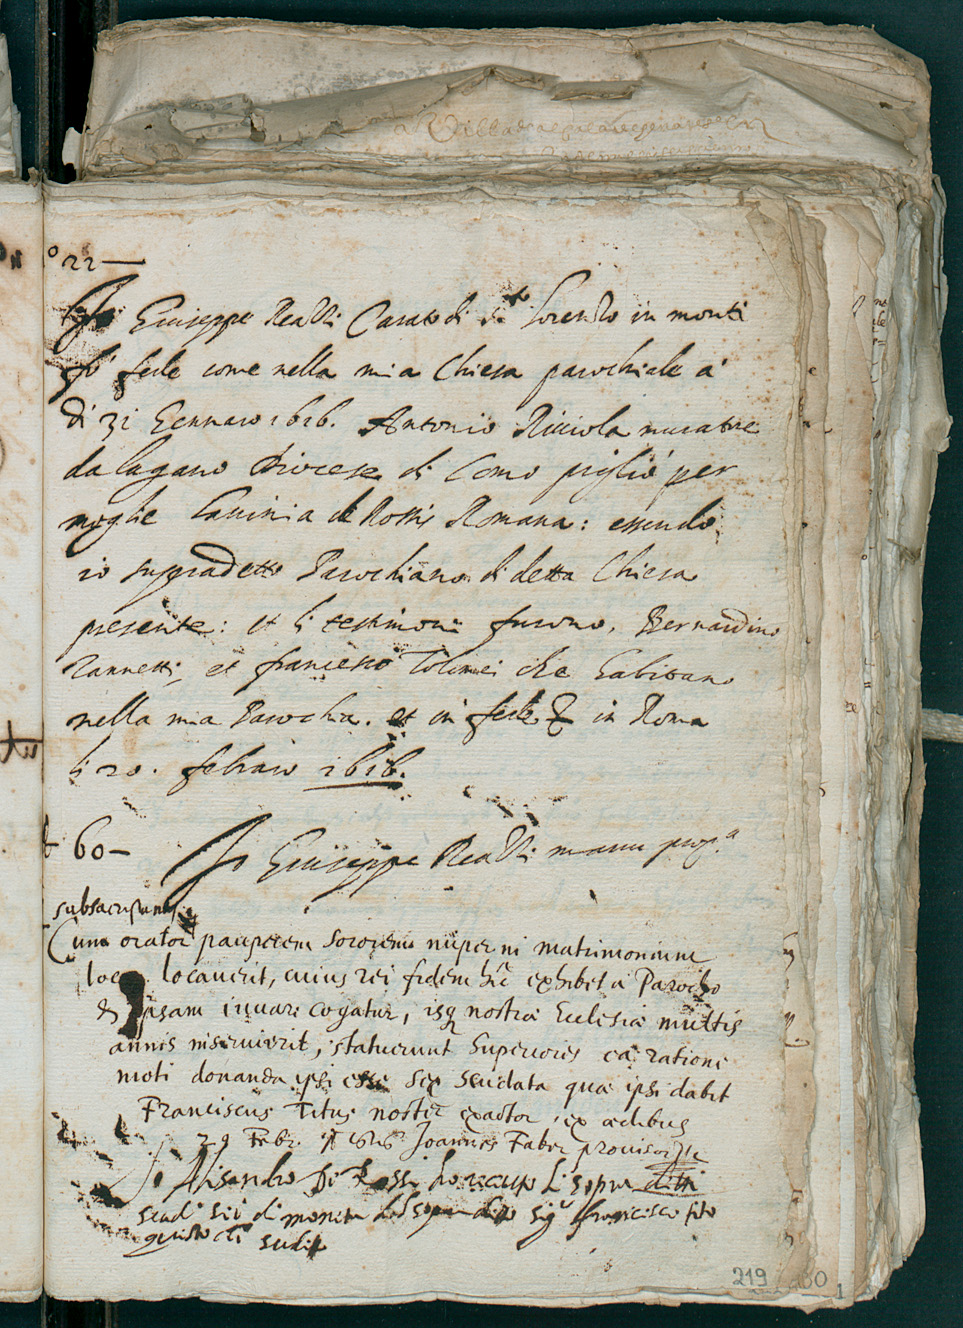 ° 22 —
Io Giuseppe Realli Curato di s.to Lorenzo in monti
fò fede come nella mia Chiesa parochiale a
dì 31 Gennaro 1616. Antonio Ricciola muratore
da lugano Diocese di Como pigliò per
moglie Lavinia de Rossis Romana: essendo
io sopradetto Parochiano di detta Chiesa
presente: et li testimoni furono, Bernardino
Zannetti, et francesco Tolomei che habitano
nella mia Parochia. et in fede in Roma
li 20. febraro 1616.
60 —
Io Giuseppe Realli manu prop.a
Cum orator pauperem sororem nuper in matrimonium
locaverit, cuius rei fidem hic exhibet a Parocho
& ipsam iuvare cogatur, isq nostræ Ecclesiæ multis
annis inserviverit, statuerunt Superiores ea ratione
moti donanda ipsi esse sex scudata quæ ipsi dabit
Franciscus Titus noster exactor, ex ædibus
29 Febr. 1616 Joannes Faber provisor
Io Alisandro De Rossi ho receuto li sopra ditti
scudi sei di moneta dal sopra dito sig.r francisco tito
questo dì sudito
219